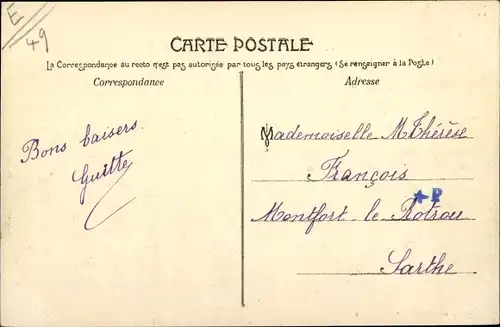 E
49
CARTE POSTALE
La Correspondance au recto n'est pas autorisée par tous les pays étrangers (Se renseigner à la Poste.)
Correspondance
Adresse
Bons baisers.
Guitte
Mademoiselle M Thérèse
François
★ P
Montfort-le Rotrou
Sarthe